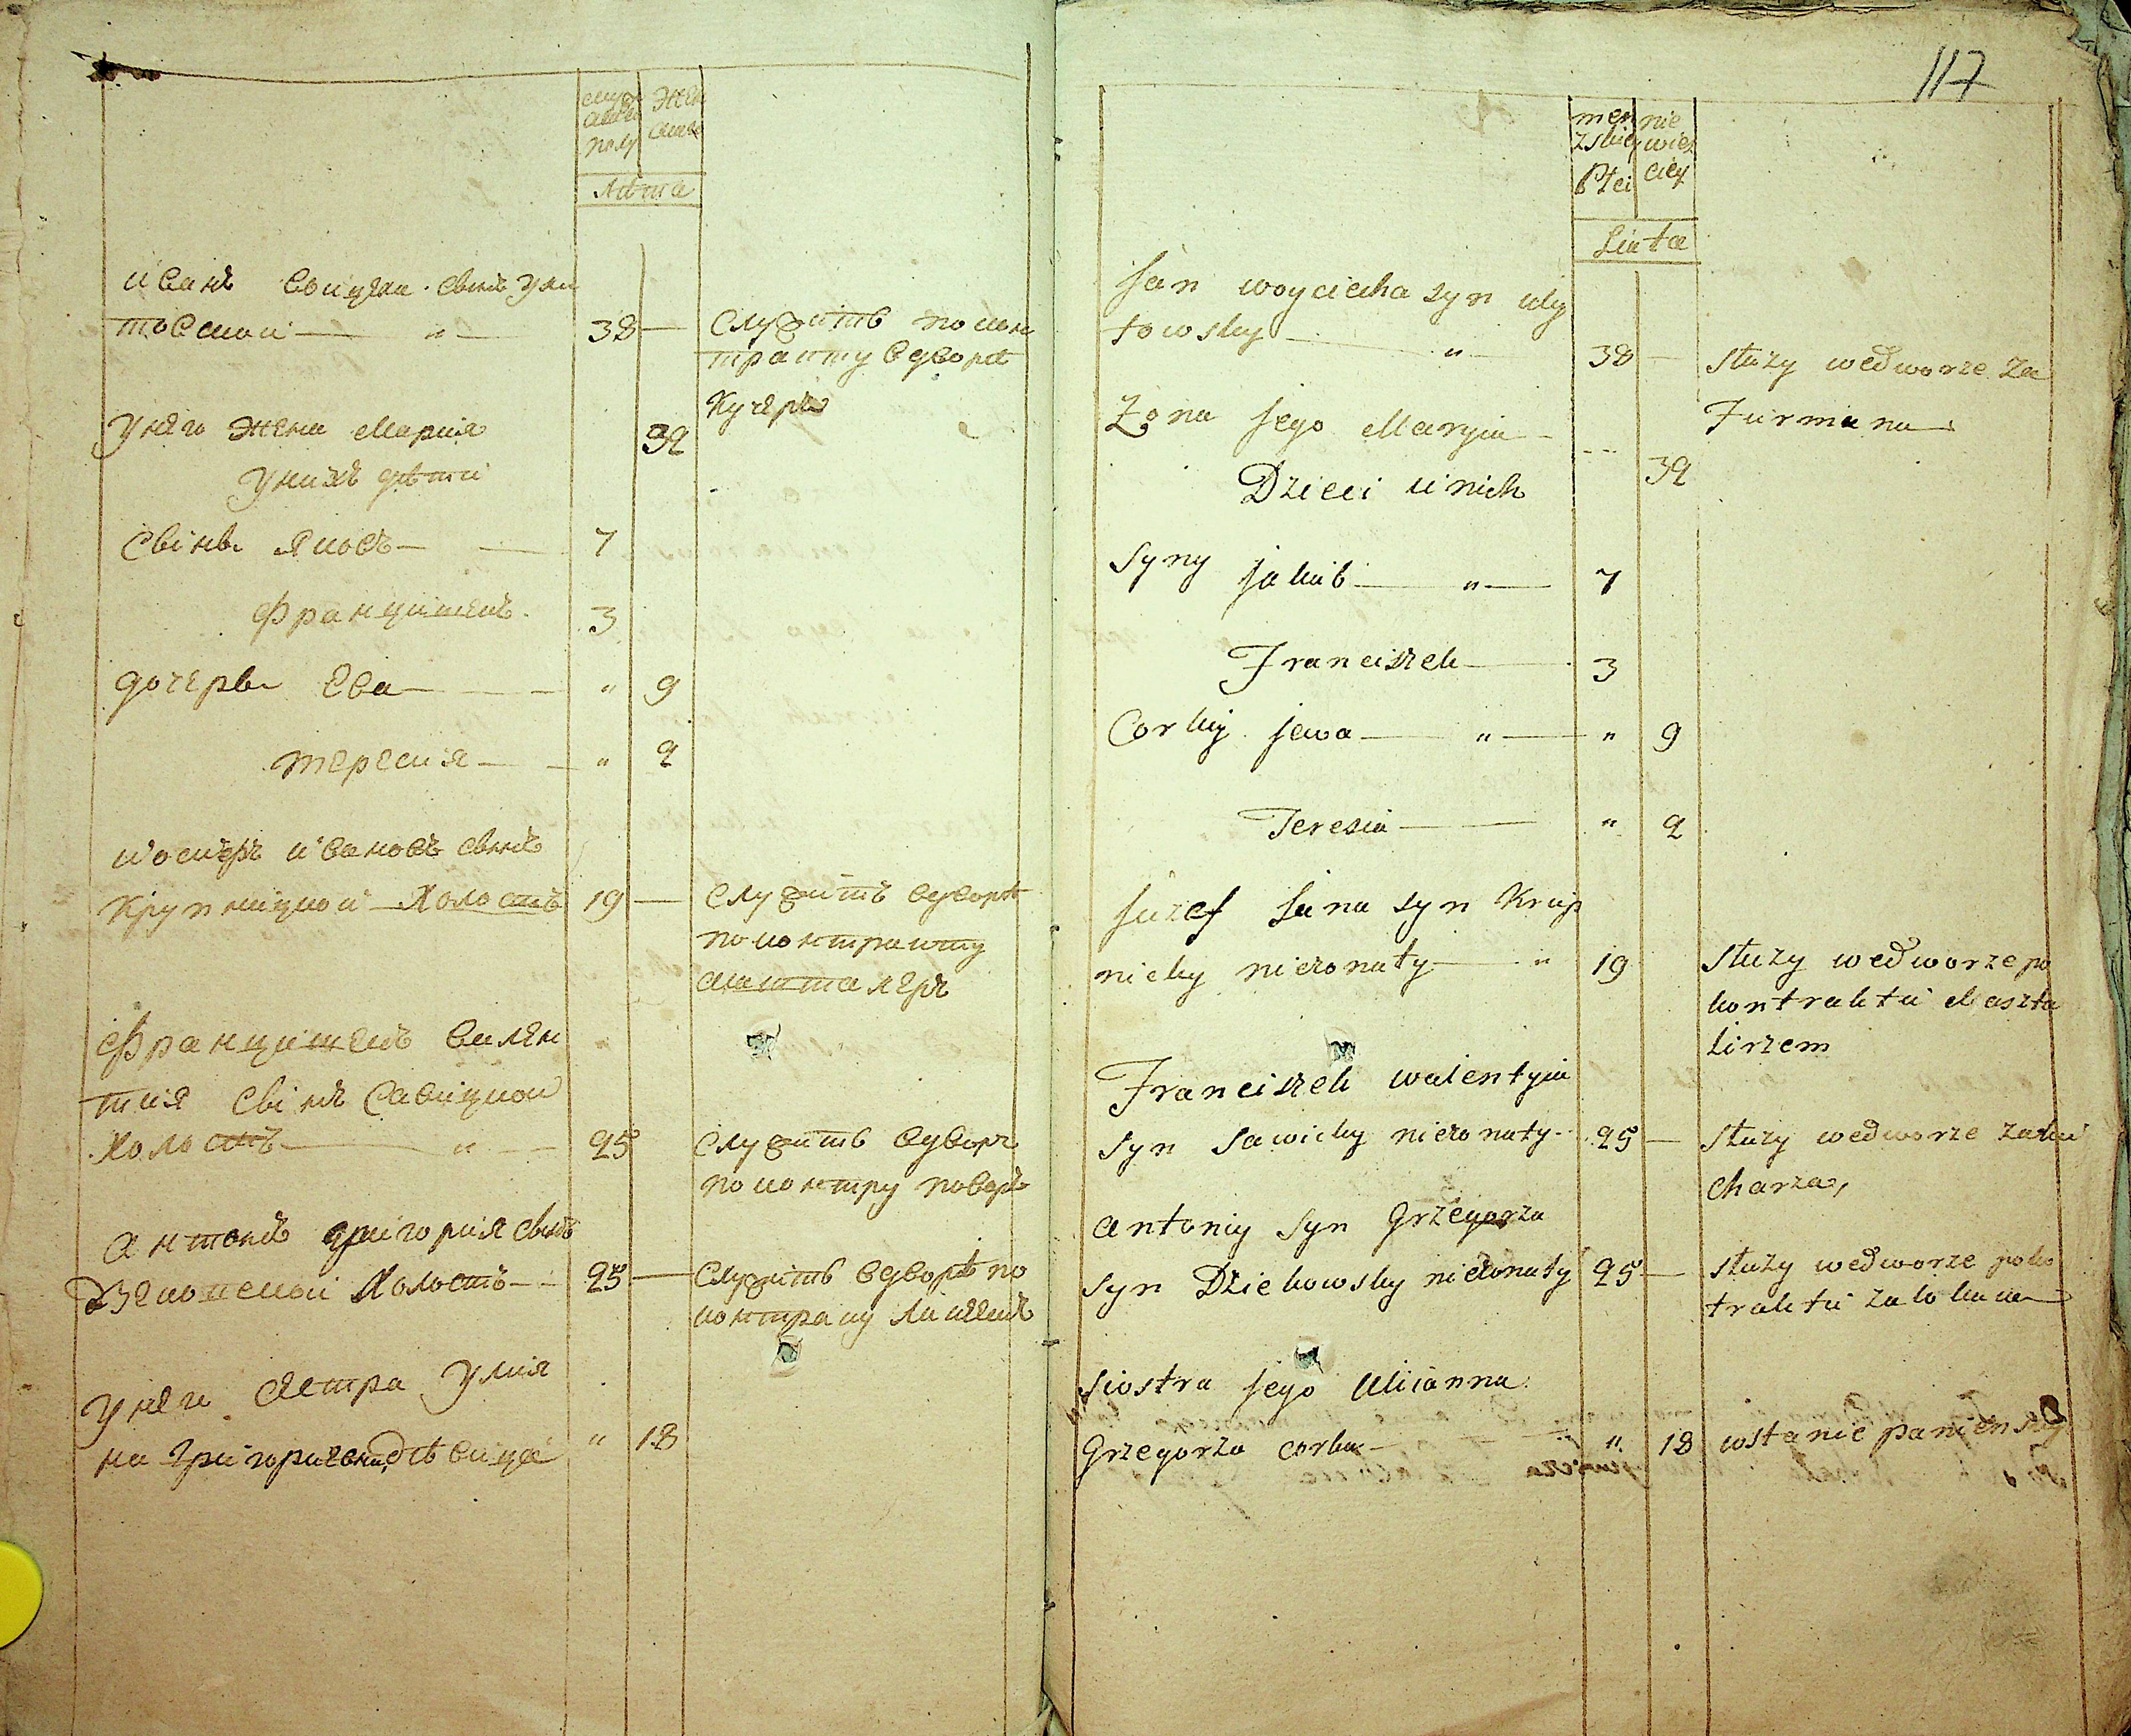 муж
ска
полу
жен
ска
Лѣта
Иванъ Войцеха сынъ Ули
товский — " — 38 — Служитъ покон
тракту вдворѣ
Кучеръ
У него жена Мария 32
У нихъ дѣти
Сыны Якобъ — 7
Францишекъ 3
дочеры Ева — " 9
Тересия — " 2
Иосифъ Ивановъ сынъ
Крупницкой Холостъ 19 — Служитъ вдворѣ
поконтракту
машталеръ
Францишекъ Вален
тия сынъ Савицкой
Холостъ — " — 25 Служитъ вдворѣ
поконтру поваръ
Антонъ Григория сынъ
Дзеконской Холостъ — 25 — Служитъ вдворѣ по
контраку Локаемъ
У него сестра Улия
на Григориевна дѣвица " 18
117
men
zskiey
Płci
nie
wies
ciey
Liata
Jan Woyciecha syn Uly
towsky — " — 38 — służy wedworze za
Furmana
Żona jego Maryia — 32
Dzieci u nich
Syny Jakub — " — 7
Franciszek — 3
Corky Jewa — " — " 9
Teresia — " 2
Juzef Jana syn Krup
nicky nieżonaty — " 19 służy wedworze po
kontraktu Maszta
lirzem
Franciszek Walentyia
syn Sawicky nieżonaty 25 — służy wedworze zaku
charza,
Antoniy syn Grzegorza
syn Dziekowsky nieżonaty 25 — służy wedworze poko
traktu za lokaia
Siostra jego Ulianna
Grzegorza corka — " 18 wstanie panienskey